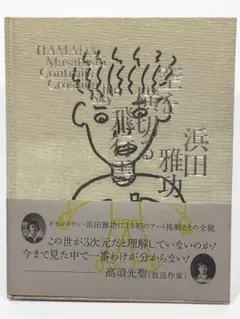 HAMADA
Masatoshi
Contrails
Crossing
the
Sky
空を
横切る
飛行雲
浜田
雅功
ダウンタウン・浜田雅功による初のアート挑戦とその全貌
この世が3次元だと理解していないのか!
今まで見た中で一番わけが分からない!
高須光聖(放送作家)